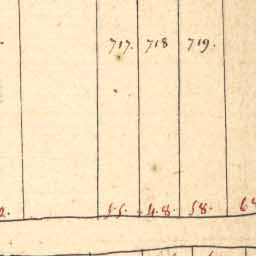 717. 718 719.
55. 48. 58.